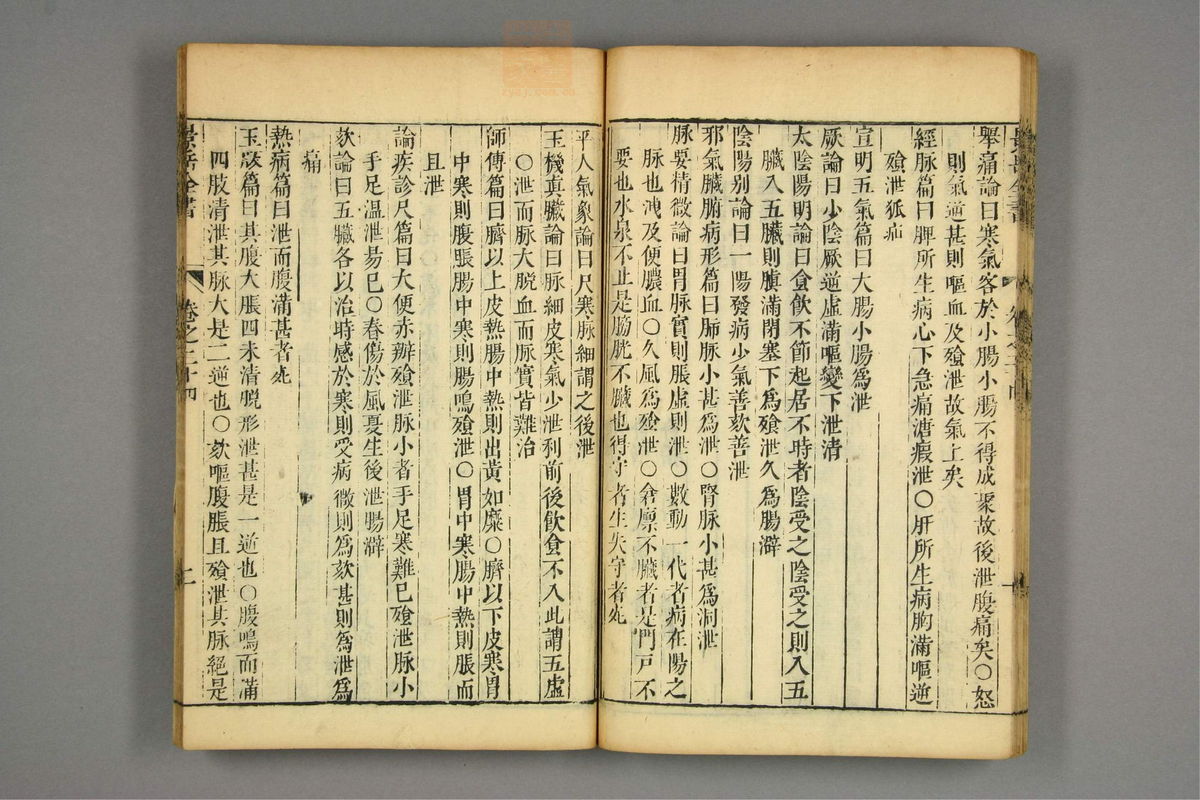 舉痛論曰寒氣客於小腸小腸不得成聚故後泄腹痛矣○怒
則氣逆甚則嘔血及飱泄故氣上矣
經脉篇曰脾所生病心下急痛溏瘕泄○肝所生病胸滿嘔逆
飱泄狐疝
宣明五氣篇曰大腸小腸爲泄
厥論曰少陰厥逆虛滿嘔變下泄清
太陰陽明論曰食飲不節起居不時者陰受之陰受之則入五
臟入五臟則䐜滿閉塞下爲飱泄久爲腸澼
陰陽别論曰一陽發病少氣善欬善泄
邪氣臟腑病形篇曰肺脉小甚爲泄○腎脉小甚爲洞泄
脉要精微論曰胃脉實則脹虛則泄○數動一代者病在陽之
脉也洩及便膿血○久風爲飱泄○倉廪不臟者是門戸不
要也水泉不止是膀胱不臟也得守者生失守者死
平人氣象論曰尺寒脉細謂之後泄
玉機真臟論曰脉細皮寒氣少泄利前後飲食不入此謂五虛
○泄而脉大脱血而脉實皆難治
師傳篇曰臍以上皮熱腸中熱則出黄如糜○臍以下皮寒胃
中寒則腹脹腸中寒則腸鳴飱泄○胃中寒腸中熱則脹而
且泄
論疾診尺篇曰大便赤瓣飱泄脉小者手足寒難已飱泄脉小
手足温泄易已○春傷於風夏生後泄腸澼
欬論曰五臟各以治時感於寒則受病微則爲欬甚則爲泄爲
痛
熱病篇曰泄而腹滿甚者死
玉版篇曰其腹大脹四末清脱形泄甚是一逆也○腹鳴而滿
四肢清泄其脉大是二逆也○欬嘔腹脹且飱泄其脉絕是
景岳全書
卷之二十四